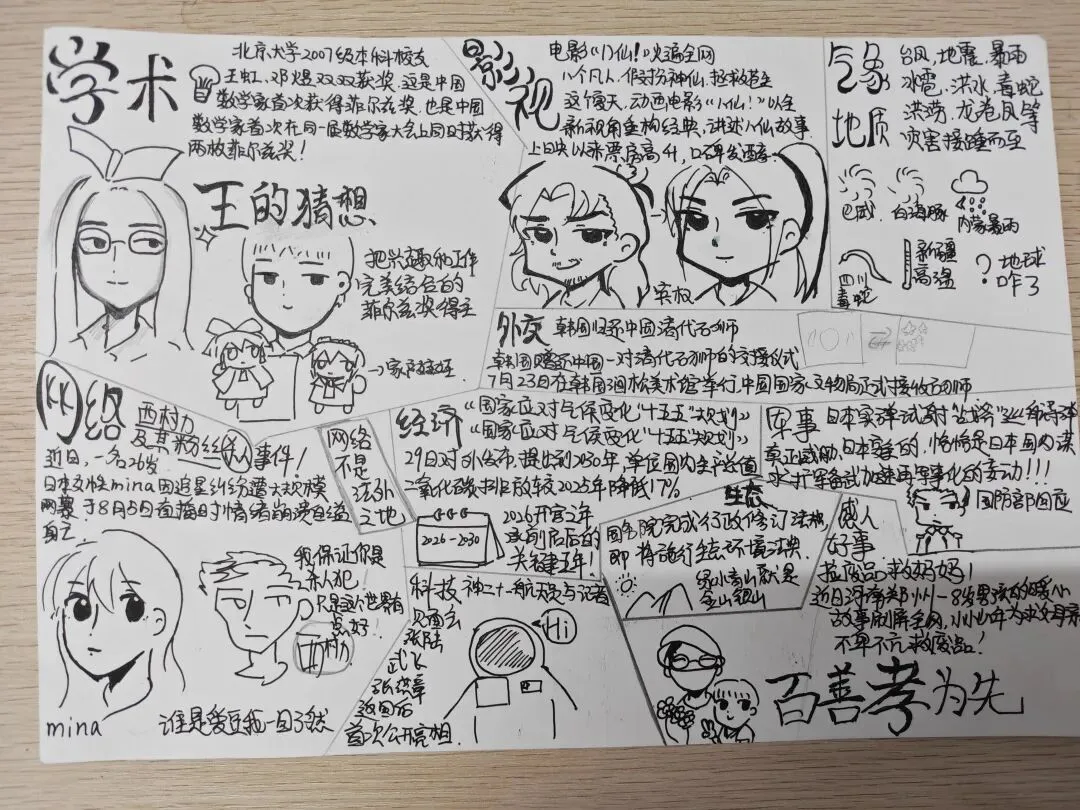 学术
北京大学2007级本科校友
王虹、邓煜双双获奖,这是中国
数学家首次获得菲尔兹奖,也是中国
数学家首次在同一届数学家大会上同时获得
两枚菲尔兹奖!
王的猜想
把兴趣和工作
完美结合的
菲尔兹奖得主
影视
电影《八仙!》火遍全网
八个凡人,假扮神仙,拯救苍生
这个夏天,动画电影《八仙!》以全
新视角重构经典,讲述八仙故事
上映以来票房高升,口碑发酵
气象
地质
台风,地震,暴雨
冰雹,洪水,毒蛇
洪涝,龙卷风等
灾害接踵而至
巴威
白海豚
内蒙暴雨
四川
毒蛇
新疆
高温
?
地球
咋了
外交
韩国归还中国清代石狮
韩国赠还中国一对清代石狮的交接仪式
7月23日在韩国涧松美术馆举行,中国国家文物局正式接收石狮
网络
西村力
及其粉丝杀人事件!
近日,一名26岁
日本女性mina因追星纠纷遭大规模
网暴,于8月5日直播时情绪崩溃自缢
自己
网络
不是
法外
之地
我保证你是
杀人犯
只是这个世界有
点好!
西村力
mina
谁是爱豆我一目了然
经济
《国家应对气候变化“十五五”规划》
《国家应对气候变化“十五五”规划》
29日对外公布,提出到2030年,单位国内生产总值
二氧化碳排放较2025年降低17%
2026-2030
2026开官之年
承前启后的
关键五年!
军事
真正威胁日本安全的,恰恰是日本国内谋
求扩军备武加速再军事化的妄动!!!
国防部回应
生态
国务院完成行政修订法规,
即将施行生态环境法典
绿水青山就是
金山银山
科技
神二十一航天员与记者
见面会
张陆
武飞
张洪章
返回后
首次公开亮相
Hi
感人
好事
捡废品,救妈妈!
近日河南郑州一8岁男孩的暖心
故事刷屏全网,小小少年为求父母亲
不卑不亢救废品!
百善孝为先